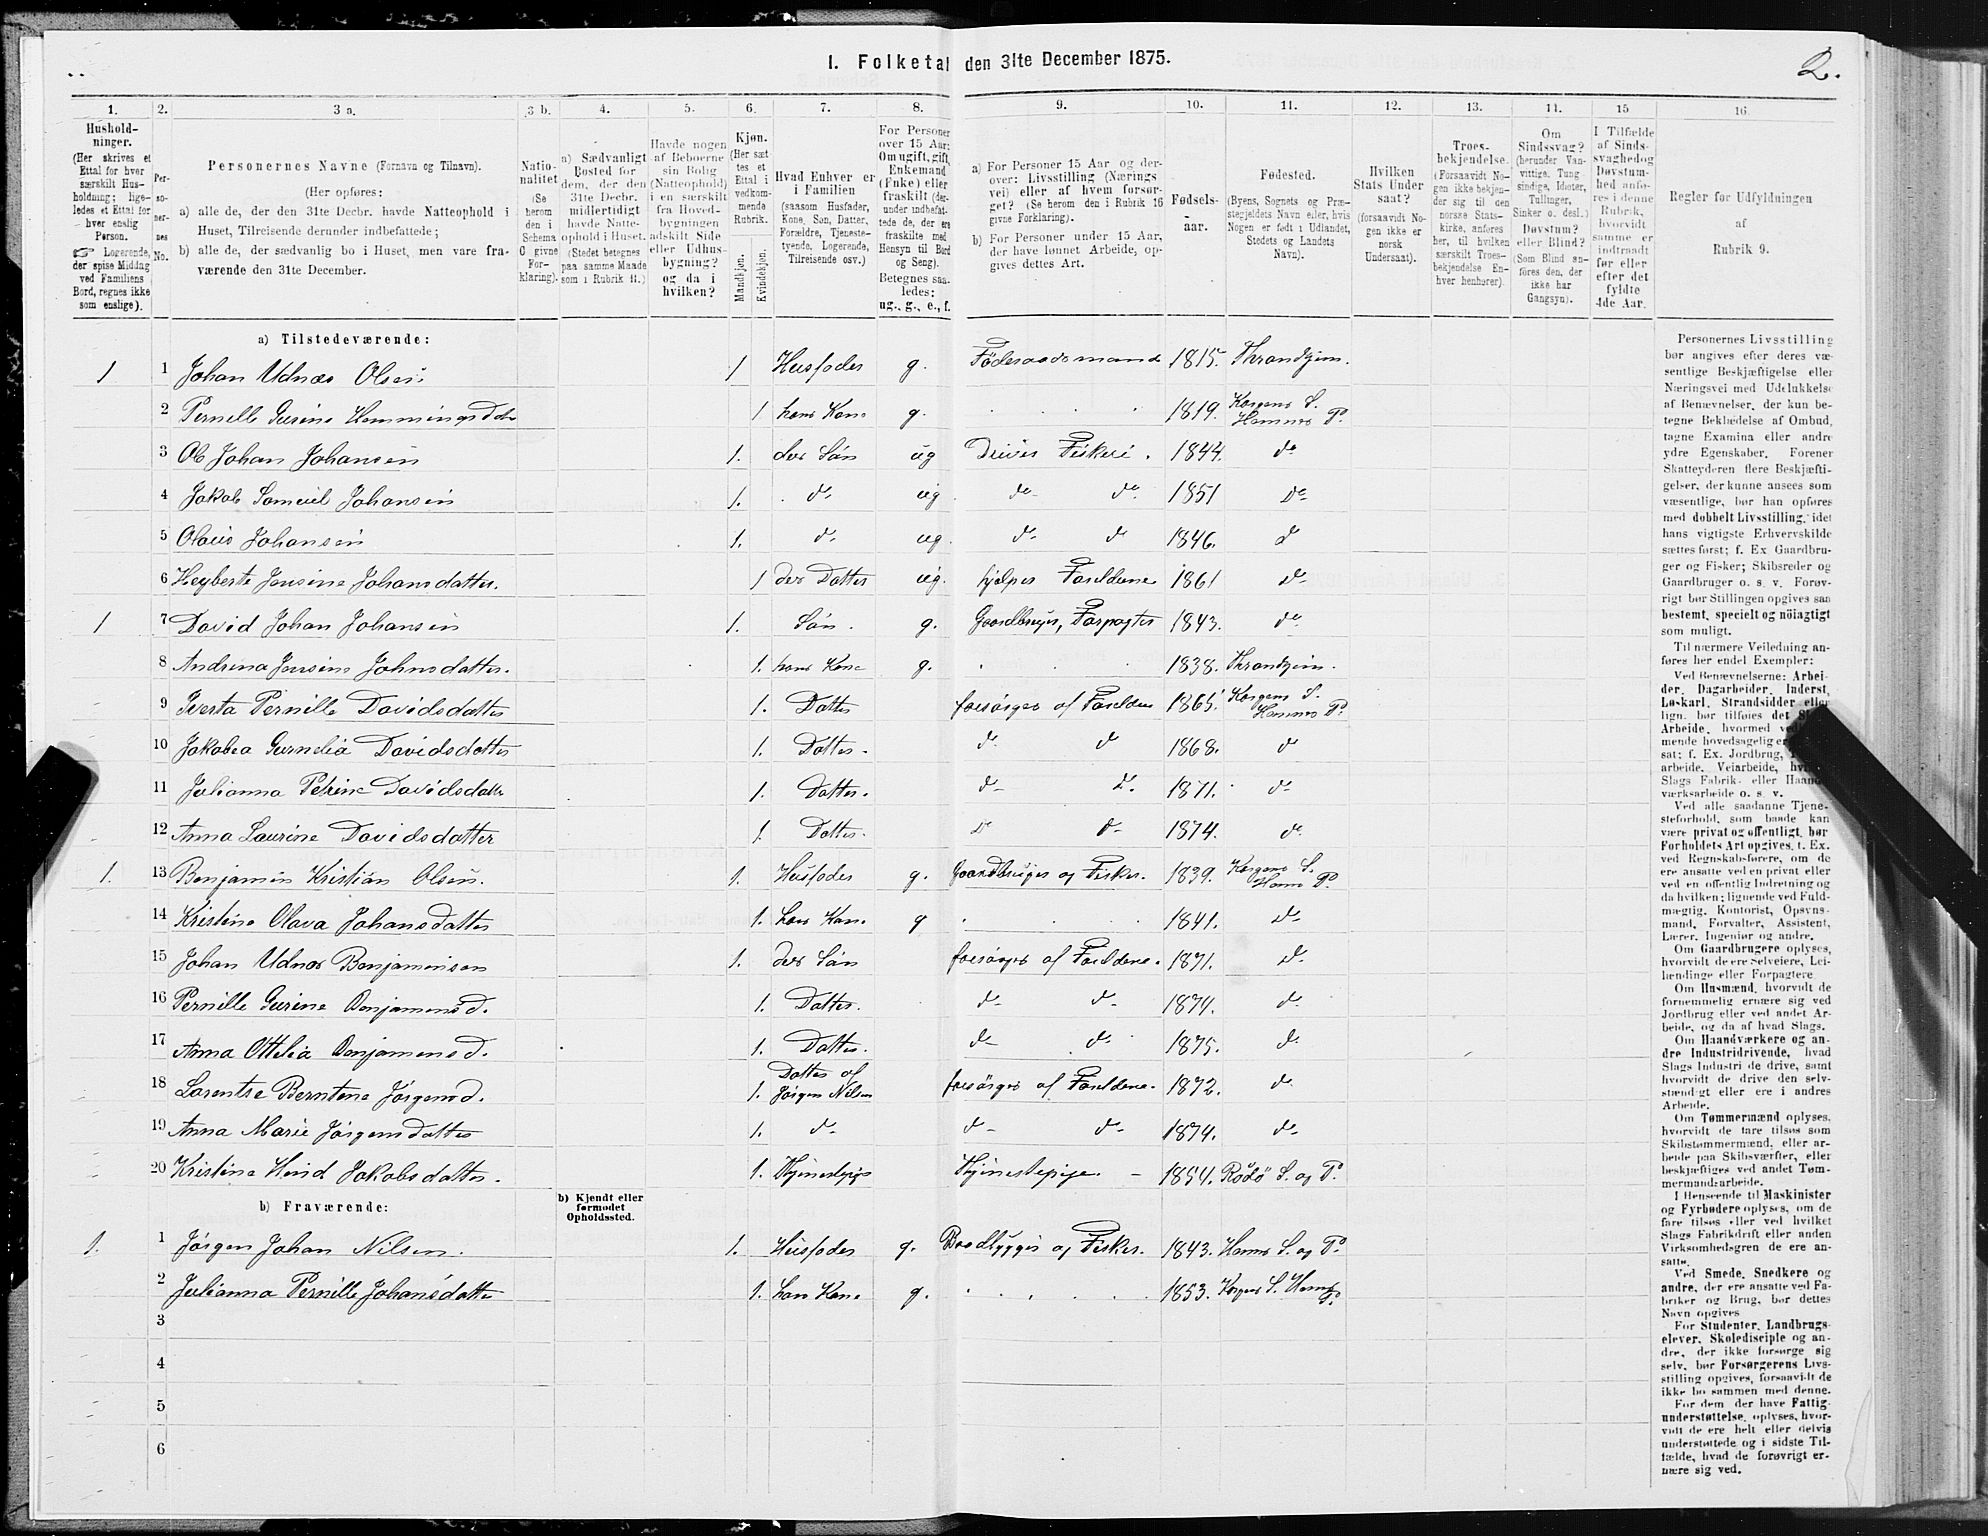 I. Folketal den 31te December 1875.
2.
1. 2. 3 a. 3 b. 4. 5. 6. 7. 8. 9. 10. 11. 12. 13. 14. 15 16
Husholdninger.
(Her skrives et Ettal for hver særskilt Husholdning; ligeledes et Ettal for hver enslig Person.
☞ Logerende, der spise Middag ved Familiens Bord, regnes ikke som enslige).
Personernes No.
Personernes Navne (Fornavn og Tilnavn).
(Her opføres:
a) alle de, der den 31te Decbr. havde Natteophold i Huset, Tilreisende derunder indbefattede;
b) alle de, der sædvanlig bo i Huset, men vare fraværende den 31te December.
Nationalitet (Se herom den i Schema 6 givne Forklaring).
a) Sædvanligt Bosted for dem, der den 31te Decbr. midlertidigt havde Natteophold i Huset. (Stedet betegnes paa samme Maade som i Rubrik 11.)
Havde nogen af Beboerne sin Bolig (Natteophold) i en særskilt fra Hovedbygningen adskilt Side eller Udhusbygning? og da i hvilken?
Kjøn. (Her sættes et Ettal i vedkommende Rubrik.
Mandkjøn. Kvindekjøn.
Hvad Enhver er i Familien (saasom Husfader, Kone, Søn, Datter, Forældre, Tjenestetyende, Logerende, Tilreisende osv.)
For Personer over 15 Aar: Om ugift, gift, Enkemand (Enke) eller fraskilt (derunder indbefattede de, der ere fraskilte med Hensyn til Bord og Seng). Betegnes saaledes: ug., g., e., f.
a) For Personer 15 Aar og derover: Livsstilling (Næringsvei) eller af hvem forsørget? (Se herom den i Rubrik 16 givne Forklaring).
b) For Personer under 15 Aar, der have lønnet Arbeide, opgives dettes Art.
Fødselsaar.
Fødested. (Byens, Sognets og Præstegjeldets Navn eller, hvis Nogen er født i Udlandet, Stedets og Landets Navn).
Hvilken Stats Undersaat? (forsaavidt Nogen ikke er norsk Undersaat).
Troesbekjendelse. (Forsaavidt Nogen ikke bekjender sig til den norske Statskirke, anføres her, til hvilken særskilt Troesbekjendelse Enhver henhører).
Om Sindssvag? (herunder Vanvittige, Tungsindige, Idioter, Tullinger, Sinker o. desl.) Døvstum? eller Blind? (Som Blind anføres den, der ikke har Gangsyn).
I Tilfælde af Sindssvaghed og Døvstumhed anføres i denne Rubrik, hvorvidt samme er indtraadt før eller efter det fyldte 4de Aar.
Regler for Udfyldningen af Rubrik 9.
a) Tilstedeværende:
1 1 Johan Udnæs Olsen 1 Husfader g. Føderaadsmand 1815. Throndhjem.
2 Pernille Gurine Hemmingsdatr 1 hans Kone g. 1819. Korgens S. Hemnes P.
3 Ole Johan Johansen 1. der Søn ug Driver Fiskeri. 1844. do
4 Jakob Samuel Johansen 1. do ug do do 1851 do
5 Olaus Johansen 1. do ug. do do 1846. do
6 Heyberte Jensine Johansdatter. 1 der Datter ug. hjelper Forældrene 1861 do
1 7 David Johan Johansen 1. Søn. g. Gaardbruger, Forpagter 1843. do
8 Andrina Jensine Johnsdatter. 1. hans Kone g. 1838. Throndhjem.
9 Iverta Pernille Davidsdatter 1. Datter forsørges af Forældrene 1865. Korgens S. Hemnes P.
10 Jakobea Gurnelia Davidsdatter 1. Datter. do do 1868. do
11 Julianna Petrine Davidsdatter 1. Datter. do do 1871. do
12 Anna Laurine Davidsdatter 1. Datter. do do 1874. do
1. 13 Benjamin Kristian Olsen. 1. Husfader g. Gaardbruger og Fisker. 1839. Korgens S. Hemnes P.
14 Kristine Olava Johansdatter 1. hans Kone g 1841. do
15 Johan Udnæs Benjaminsen 1. der Søn forsørges af Forældrene. 1871. do
16 Pernille Gurine Benjaminsd. 1. Datter. do do 1874. do
17 Anna Ottelia Benjaminsd. 1. Datter. do do 1875. do
18 Lorentse Berntine Jørgensd. 1. Datter af Jørgen Nilsen forsørges af Forældrene. 1872. do
19 Anna Marie Jørgensdatter 1. do do do 1874. do
20 Kristine Jakobsdatter. 1. Thjenestepige Thjenestepige. 1854. Rødø S. og P.
b) Fraværende:
b) Kjendt eller formodet Opholdssted.
1. 1 Jørgen Johan Nilsen. 1. Husfader g. Baadbygger og Fisker. 1843. Hemnes S. og P.
2 Julianna Pernille Johansdatter 1. hans Kone g. 1853. Korgens S. Hemnes P.
3
4
5
6
Personernes Livsstilling bør angives efter deres væsentlige Beskjæftigelse eller Næringsvei med Udelukkelse af Benævnelser, der kun betegne Beklædelse af Ombud, tagne Examina eller andre ydre Egenskaber. Forener Skatteyderen flere Beskjæftigelser, der kunne ansees som væsentlige, bør han opføres med dobbelt Livsstilling, idet hans vigtigste Erhvervskilde sættes først; f. Ex Gaardbruger og Fisker; Skibsreder og Gaardbruger o. s. v. Forøvrigt bør Stillingen opgives saa bestemt, specielt og nöiagtigt som muligt.
Til nærmere Veiledning anføres her endel Exempler:
Ved Benævnelserne: Arbeider, Dagarbeider, Inderst, Løskarl, Strandsidder eller lign. bør tilføies det
Arbeide, hvormed
mende hovedsagelig er
sat; f. Ex. Jordbrug,
arbeide, Veiarbeide,
Slags Fabrik- eller Haand-
værksarbeide o. s. v.
Ved alle saadanne Tjenesteforhold, som baade kan være privat og offentligt, bør Forholdets Art opgives, t. Ex. ved Regnskabsførere, om de ere ansatte ved en privat eller ved en offentlig Indretning og da hvilken; lignende ved Fuldmægtig, Kontorist, Opsynsmand, Forvalter, Assistent, Lærer, Ingeniør og andre.
Om Gaardbrugere oplyses, hvorvidt de ere Selveiere, Leilændinge eller Forpagtere
Om Husmænd, hvorvidt de fornemmelig ernære sig ved Jordbrug eller ved andet Arbeide, og da af hvad Slags.
Om Haandværkere og andre Industridrivende, hvad Slags Industri de drive, samt hvorvidt de drive den selvstændigt eller ere i andres Arbeide.
Om Tømmermænd oplyses, hvorvidt de fare tilsøs som Skibstømmermænd, eller arbeide paa Skibsværfter, eller beskjæftiges ved andet Tømmermandsarbeide.
I Henseende til Maskinister og Fyrbødere oplyses, om de fare tilsøs eller ved hvilket Slags Fabrikdrift eller anden Virksomhedsgren de ere ansatte.
Ved Smede, Snedkere og andre, der ere ansatte ved Fabriker og Brug, bør dettes Navn opgives
For Studenter, Landbrugselever, Skoledisciple og andre, der ikke forsørge sig selv, bør Forsørgerens Livsstilling opgives, forsaavidt de ikke bo sammen med denne.
For dem der have Fattigunderstøttelse, oplyses, hvorvidt de ere helt eller delvis understøttede og i sidste Tilfælde, hvad de forøvrigt ernære sig ved.